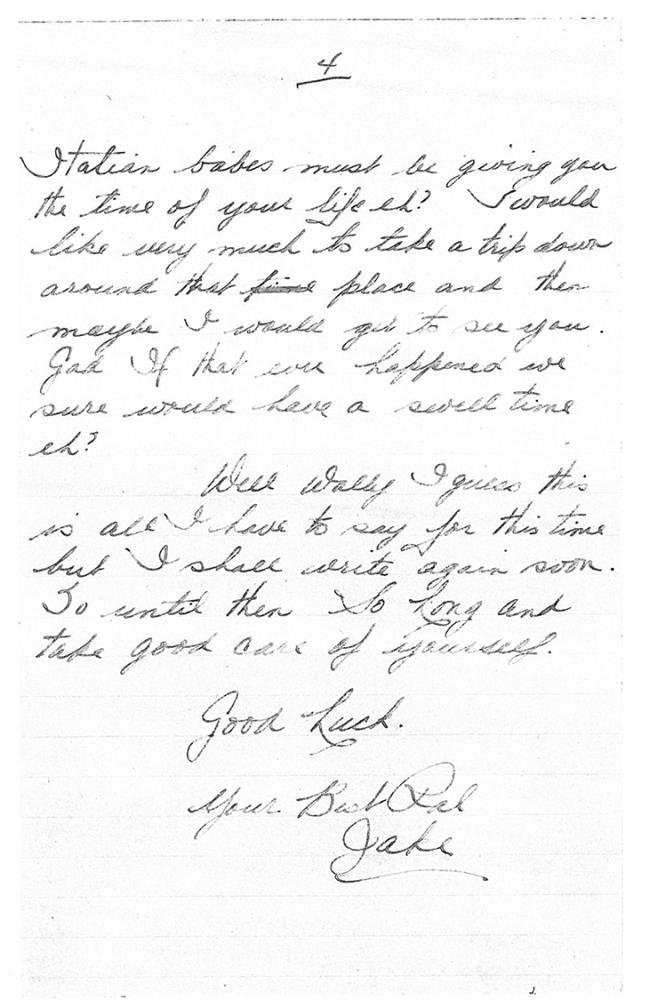 4
Italian babes must be giving you
the time of your life eh? I would
like very much to take a trip down
around that time place and then
maybe I would get to see you.
Gad If that ever happened we
sure would have a swell time
eh?
Well Wally I guess this
is all I have to say for this time
but I shall write again soon.
So until then So Long and
take good care of yourself.
Good Luck.
Your Best Pal
Jake